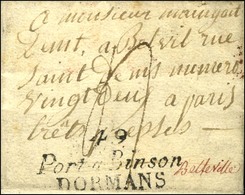 a monsieur mainguet
rue
Saint Denis numero
Vingt Deux a paris
très pressé
49
Port-à-Binson
DORMANS
Belleville